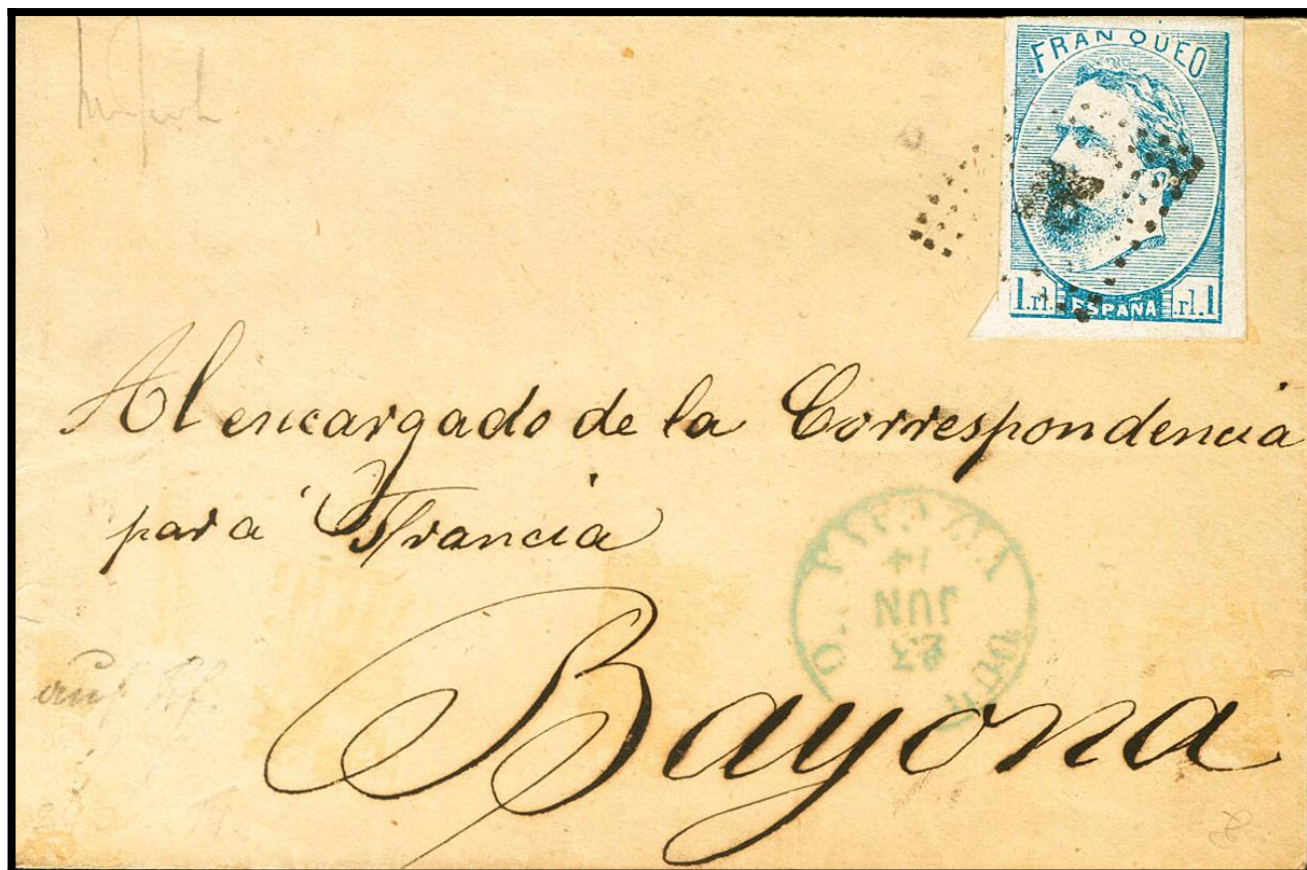 FRANQUEO
1.rl. ESPAÑA .rl.1
Al encargado de la Correspondencia
para Francia
23
JUN
Bayona
auf